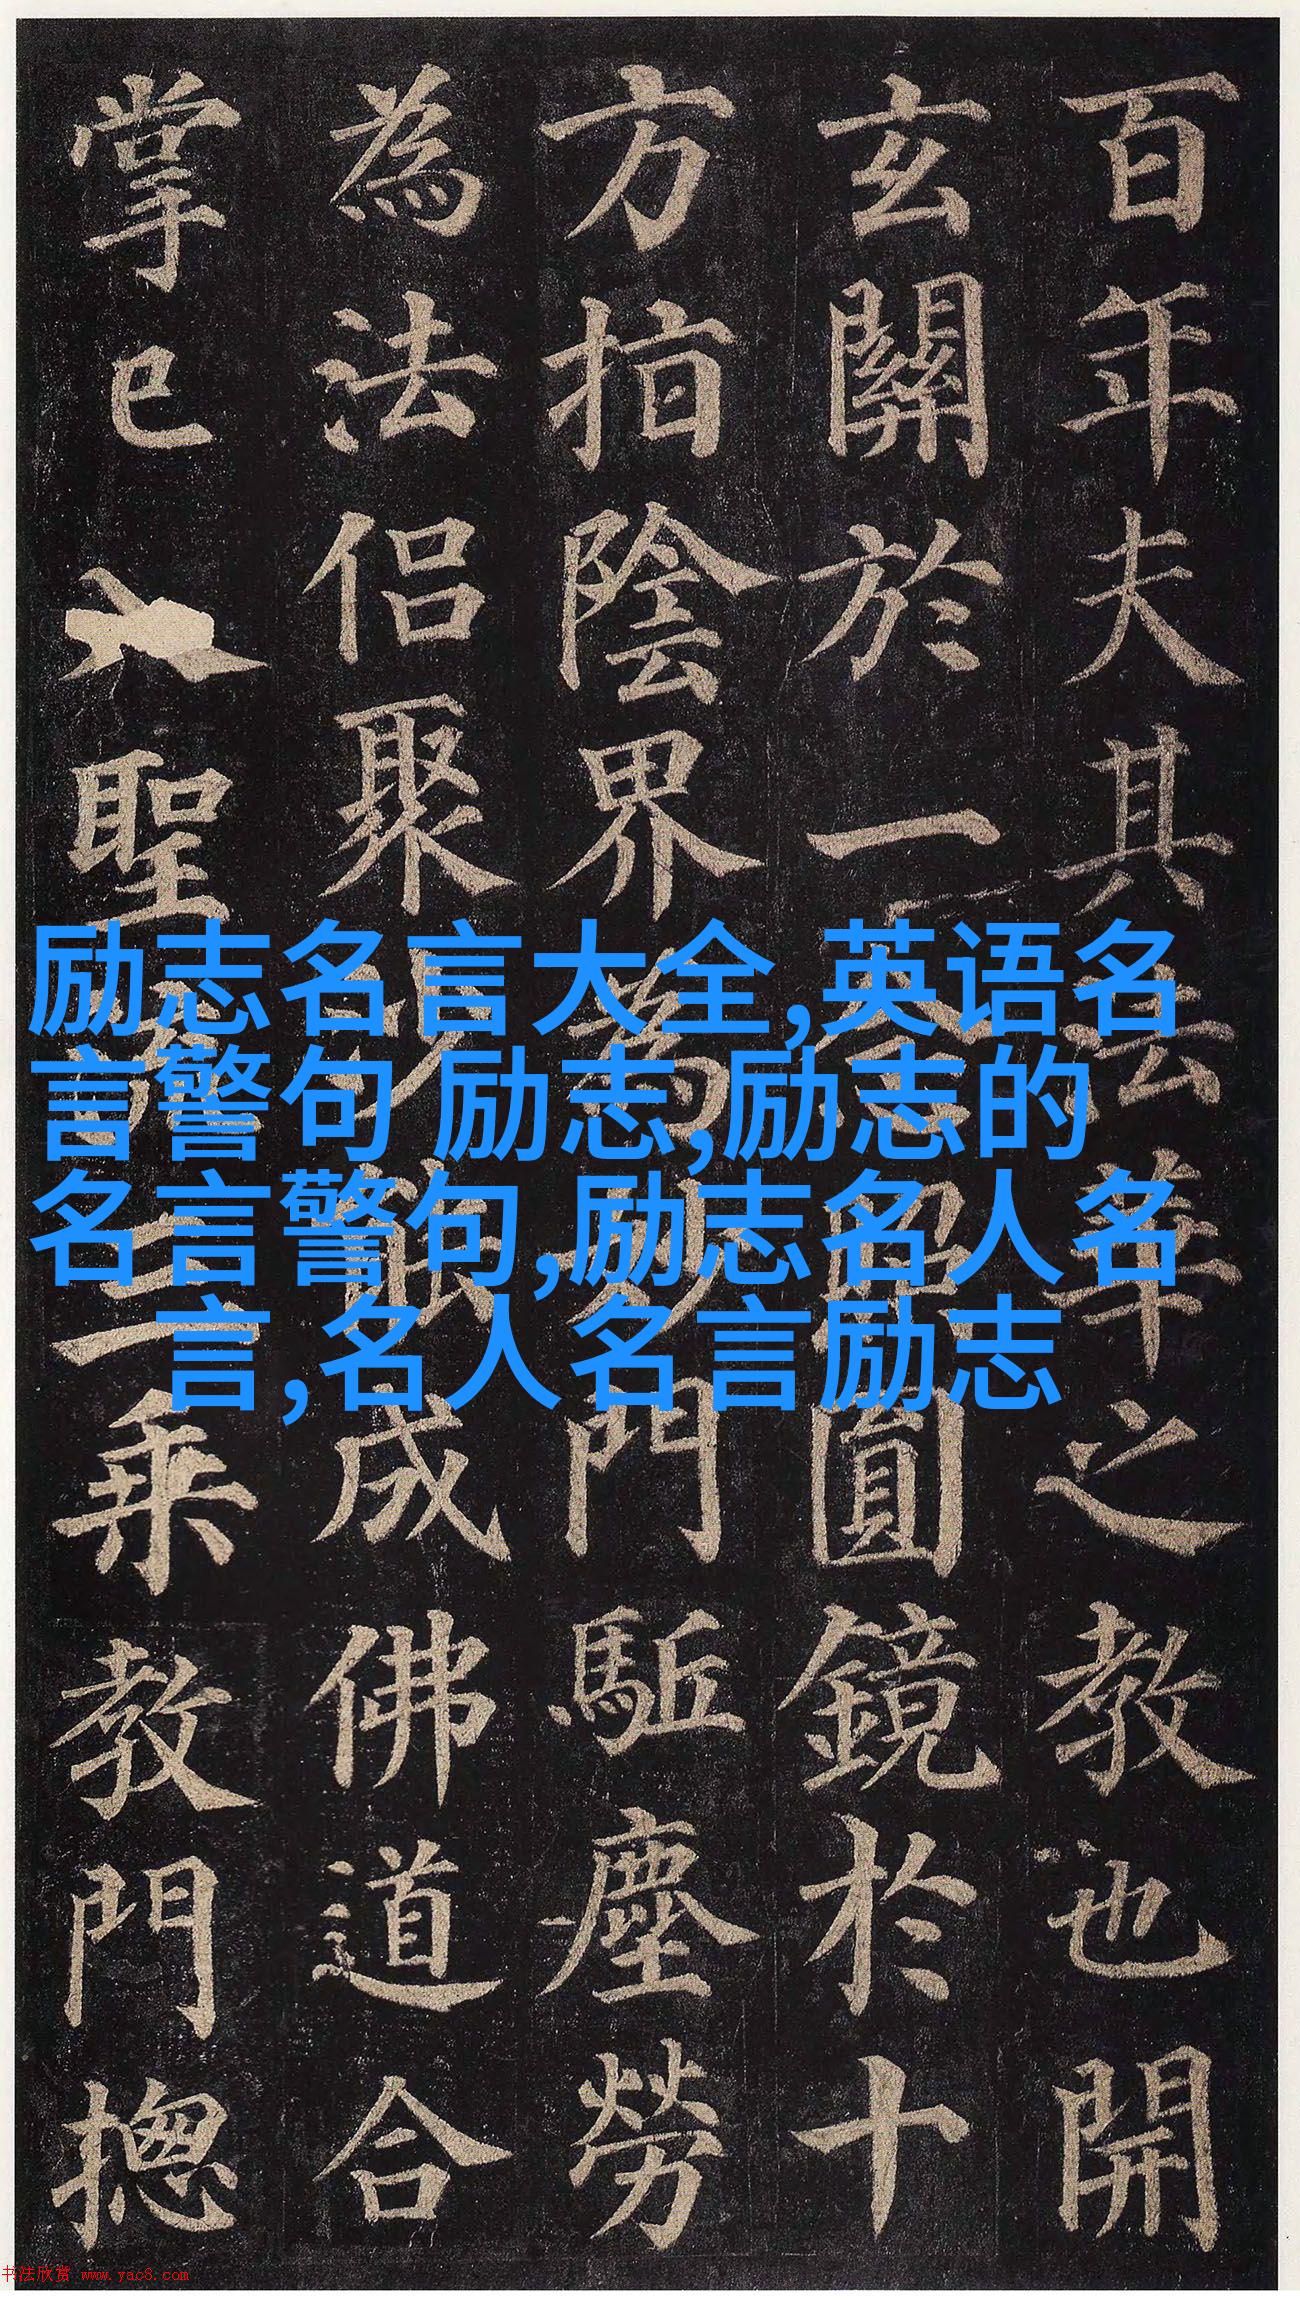 百年夫其法華之教也開
玄關於一念照圓鏡於十
方指陰界為妙門駈塵勞
為法侶聚沙能成佛道合
掌已入聖流三乘教門揔
励志名言大全,英语名
言警句 励志,励志的
名言警句,励志名人名
言,名人名言励志
书法欣赏 www.yac8.com